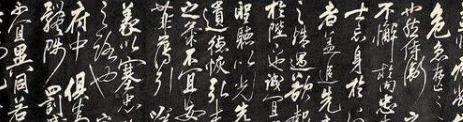 危急存亡
也然侍衛
不懈於内忠
士忘身於
者盖追先
之殊遇欲報
於陛下也誠宜
聖聽以光先
遺德恢弘志
之氣不宜妄
菲薄引
義以塞忠
之路也
府中俱為
體陟罰臧
不宜異同若